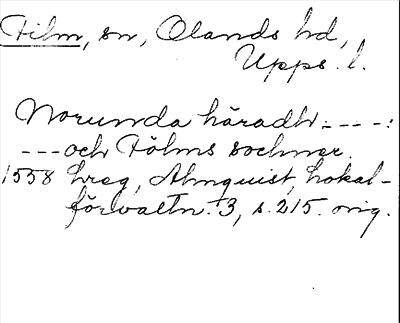 Film, sn, Olands hd,
Upps. l.
Norunda häradh: - - - :
- - - och Fölms sochner.
1558 hreg, Almquist, Lokal-
förvaltn. 3, s. 215. orig.